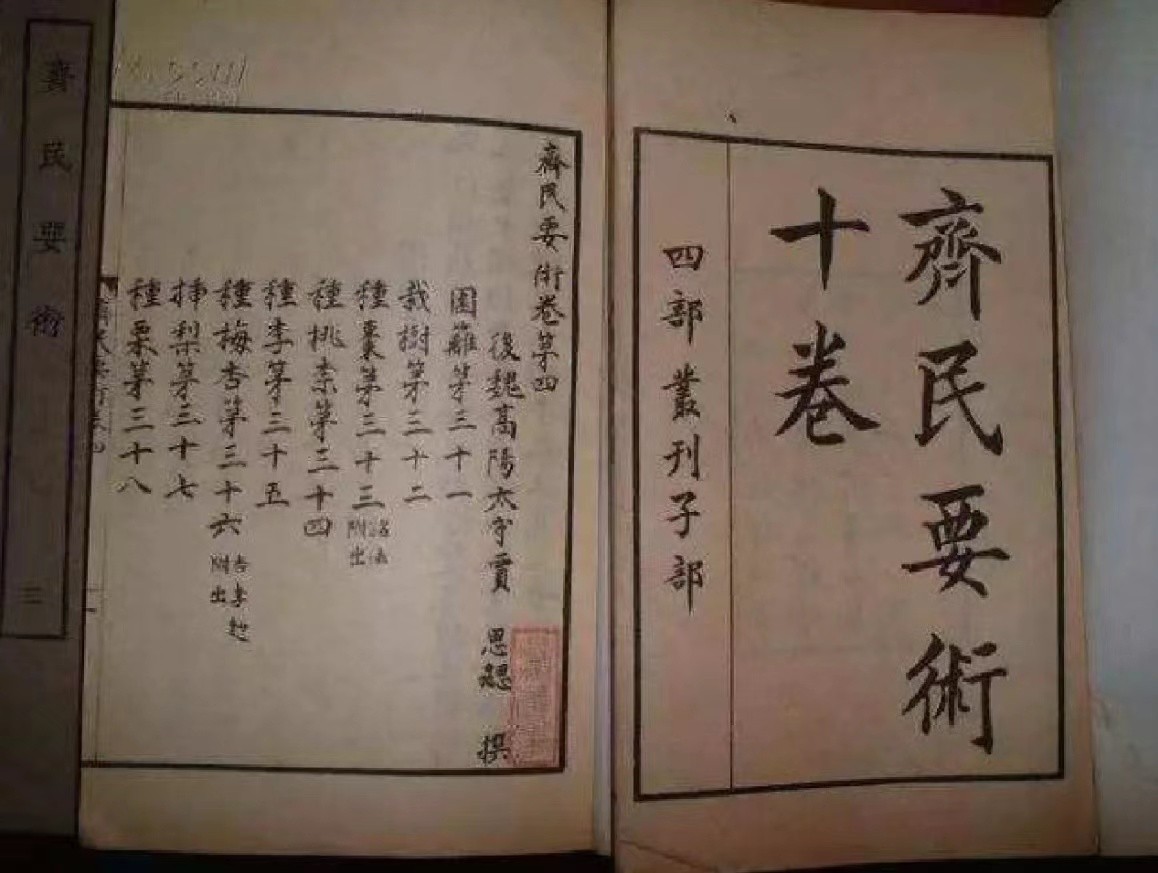 齊民要術
十卷
四部叢刊子部
齊民要術卷第四
後魏高陽太守賈思勰撰
園籬第三十一
栽樹第三十二
種棗第三十三 諸法附出
種桃柰第三十四
種李第三十五
種梅杏第三十六 杏李䴬附出
插梨第三十七
種栗第三十八
齊民要術
三